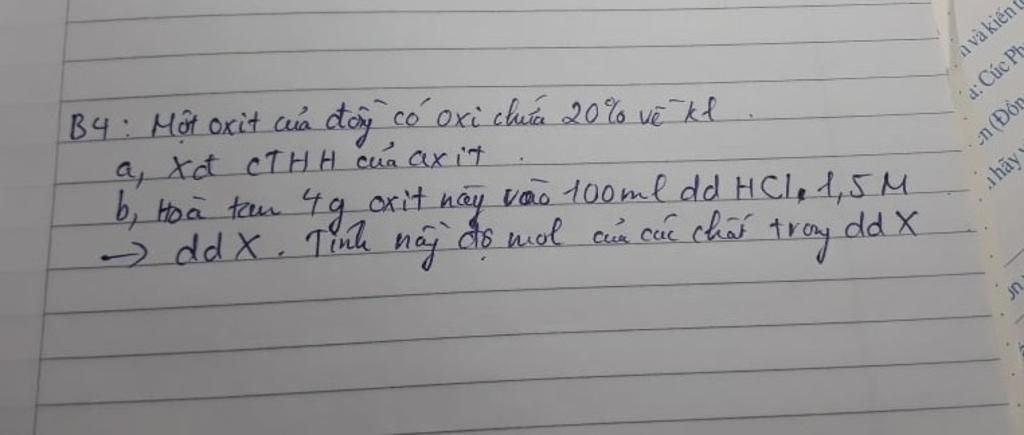 B4: Một oxit của đồng có oxi chứa 20% về kl.
a, Xđ CTHH của axit.
b, Hoà tan 4g oxit này vào 100ml dd HCl 1,5M
→ ddX. Tính nồng độ mol của các chất trong ddX
n và kiến
a: Cúc Ph
en (Đôn
hãy